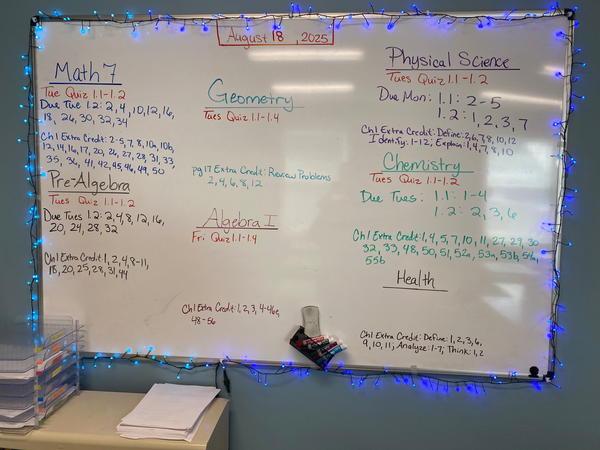 August 18, 2025
Math 7
Tue Quiz 1.1-1.2
Due Tue 1.2: 2, 4, 10, 12, 16,
18, 26, 30, 32, 34
Ch 1 Extra Credit: 2-5, 7, 8, 10a, 10b,
12, 14, 16, 17, 20, 26, 27, 28, 31, 33
35, 36, 41, 42, 45, 46, 49, 50
Pre-Algebra
Tues Quiz 1.1-1.2
Due Tues 1.2: 2, 4, 8, 12, 16,
20, 24, 28, 32
Ch 1 Extra Credit: 1, 2, 4, 8-11,
18, 20, 25, 28, 31, 44
Geometry
Tues Quiz 1.1-1.4
pg 17 Extra Credit: Review Problems
2, 4, 6, 8, 12
Algebra I
Fri Quiz 1.1-1.4
Ch 1 Extra Credit: 1, 2, 3, 4-46e,
48-56
Physical Science
Tues Quiz 1.1-1.2
Due Mon: 1.1: 2-5
1.2: 1, 2, 3, 7
Ch 1 Extra Credit: Define: 2, 6, 7, 8, 10, 12
Identify: 1-12; Explain: 1, 4, 7, 8, 10
Chemistry
Tues Quiz 1.1-1.2
Due Tues: 1.1: 1-4
1.2: 2, 3, 6
Ch 1 Extra Credit: 1, 4, 5, 7, 10, 11, 27, 29, 30
32, 33, 48, 50, 51, 52a, 53a, 53b, 54a,
55b
Health
Ch 1 Extra Credit: Define: 1, 2, 3, 6,
9, 10, 11; Analyze: 1-7; Think: 1, 2